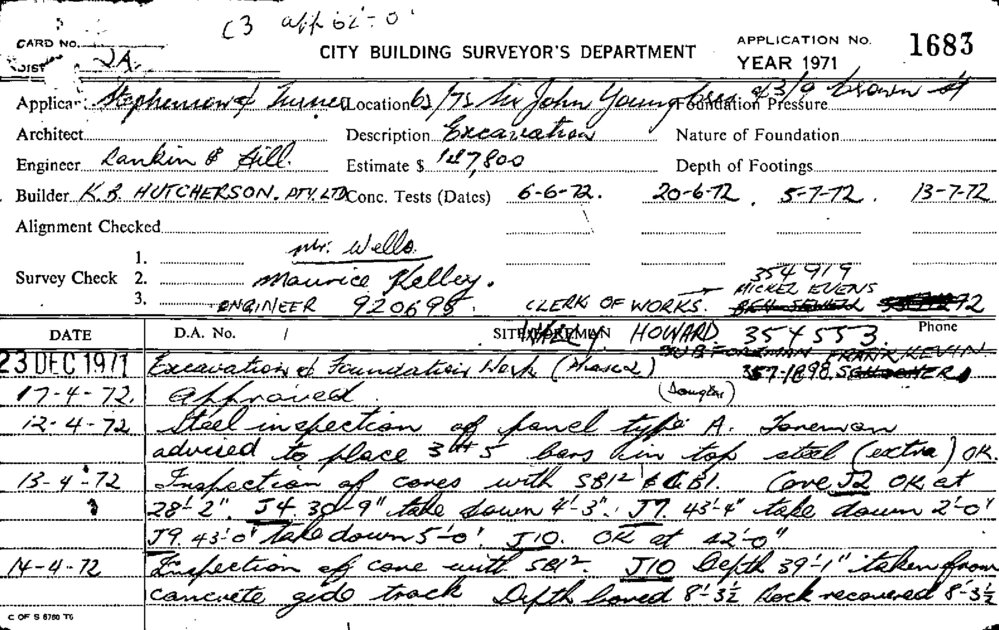 C3 app 62'-0"
CARD No. CITY BUILDING SURVEYOR'S DEPARTMENT APPLICATION No. 1683
DIST 2A. YEAR 1971
Applicant Stephenson & Turner Location 63/75 Sir John Young Cres & 3/9 Crown St Foundation Pressure
Architect Description Excavation Nature of Foundation
Engineer Rankin & Hill. Estimate $ 187,800 Depth of Footings
Builder K.B. HUTCHERSON. PTY. LTD Conc. Tests (Dates) 6-6-72. 20-6-72. 5-7-72. 13-7-72
Alignment Checked
1. Mr. Wells.
Survey Check 2. Maurice Kelley. 354919
3. ENGINEER 920695 CLERK OF WORKS. MICKEL EVENS
DATE D.A. No. / SITE FOREMAN HOWARD 354553. Phone
SUB FOREMAN FRANK KEVIN
23 DEC 1971 Excavation & Foundation Work (Phase 2) 357-1898
17-4-72. Approved (Douglas)
12-4-72 Steel inspection of panel type A. Foreman
advised to place 3 # 5 bars in top steel (extra) OK.
13-4-72 Inspection of cores with SBI2 & CBI. Core J2 OK at
28'-2". J4. 30'-9" take down 4'-3". J7. 43'-4" take down 2'-0"
J9. 43'-0" Take down 5'-0". J10. OK at 42'-0"
14-4-72 Inspection of core with SBI2. J10 Depth 39'-1" taken from
concrete gide track Depth bored 8'-3½ Rock recovered 8'-3½
C OF S 6760 T6